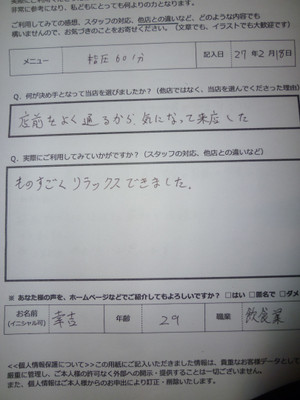 非常に参考になり、私どもにとっても何よりの力となります。
ご利用してみての感想、スタッフの対応、他店との違いなど、どのような内容でも
構いませんので、お気づきのことをお寄せください。（文章でも、イラストでも大歓迎です）
メニュー 指圧60分 記入日 27年2月18日
Q. 何が決め手となって当店を選びましたか？（他店ではなく、当店を選んでくださった理由）
店前をよく通るから、気になって来店した
Q. 実際にご利用してみていかがですか？（スタッフの対応、他店との違いなど）
ものすごくリラックスできました。
※ あなた様の声を、ホームページなどでご紹介してもよろしいですか？ □はい □匿名で □ダメ
お名前 (イニシャル可) 幸吉 年齢 29 職業 飲食業
<<個人情報保護について>>この用紙にご記入いただきました情報は、貴重なお客様データとして
厳重に管理し、ご本人様の許可なく外部への開示・提供することは一切ございません。
また、個人情報はご本人様からのお申出により訂正・削除いたします。